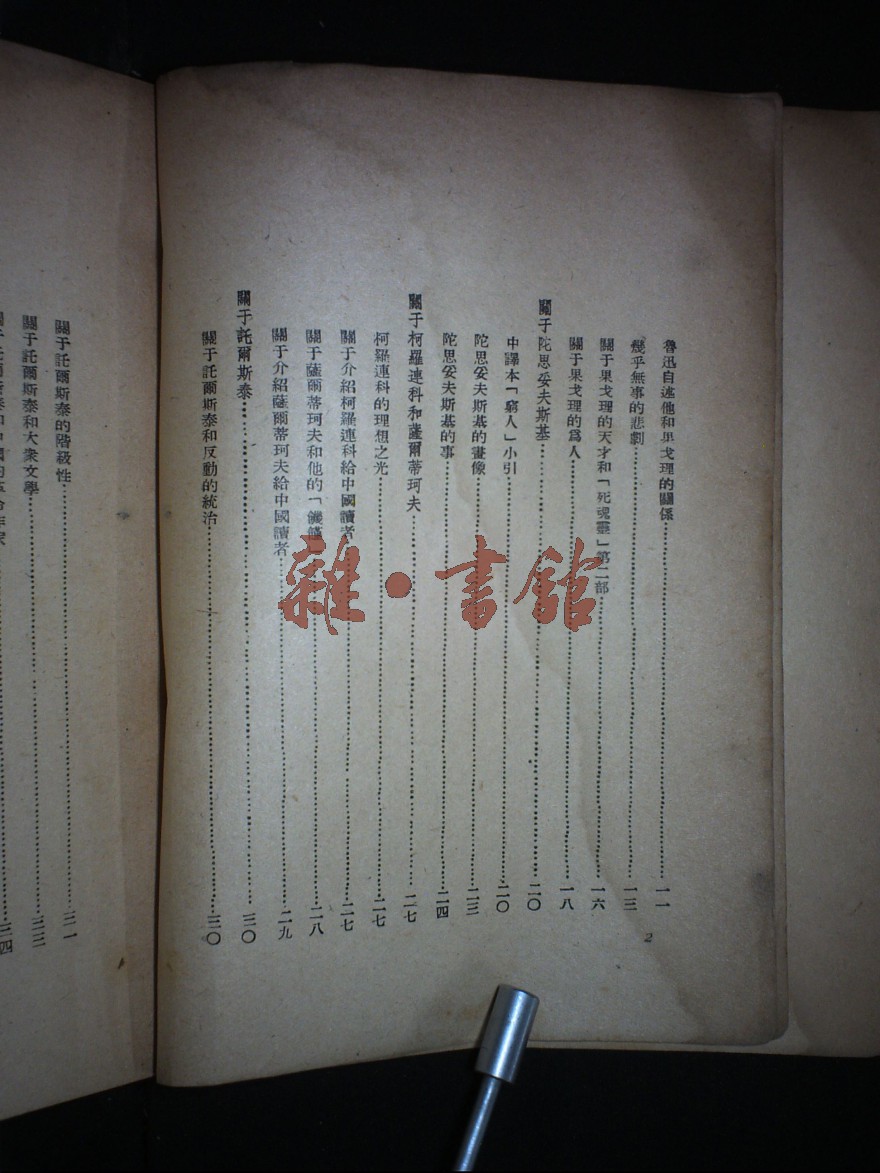 魯迅自述他和果戈理的關係……一一
幾乎無事的悲劇……一三
關于果戈理的天才和「死魂靈」第二部……一六
關于果戈理的爲人……一八
關于陀思妥夫斯基……二〇
中譯本「窮人」小引……二〇
陀思妥夫斯基的畫像……二三
陀思妥夫斯基的事……二四
關于柯羅連科和薩爾蒂珂夫……二七
柯羅連科的理想之光……二七
關于介紹柯羅連科給中國讀者……二七
關于薩爾蒂珂夫和他的「饑饉……二八
關于介紹薩爾蒂珂夫給中國讀者……二九
關于託爾斯泰……三〇
關于託爾斯泰和反動的統治……三〇
2
關于託爾斯泰的階級性……三一
關于託爾斯泰和大衆文學……三三
三四
雜·書館